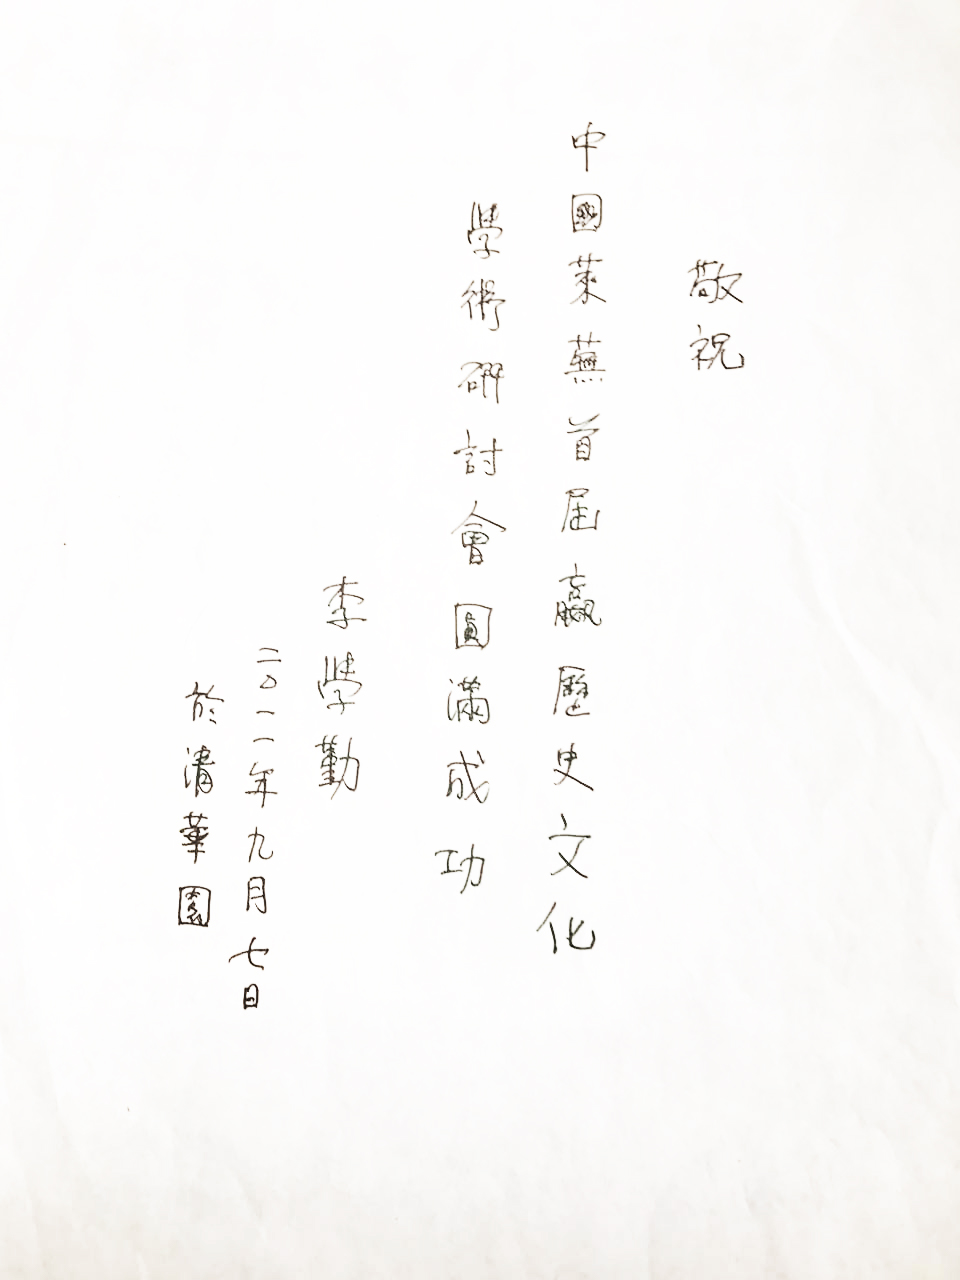 敬祝
中國萊蕪首屆嬴歷史文化
學術研討會圓滿成功
李學勤
二〇一一年九月七日
於清華園